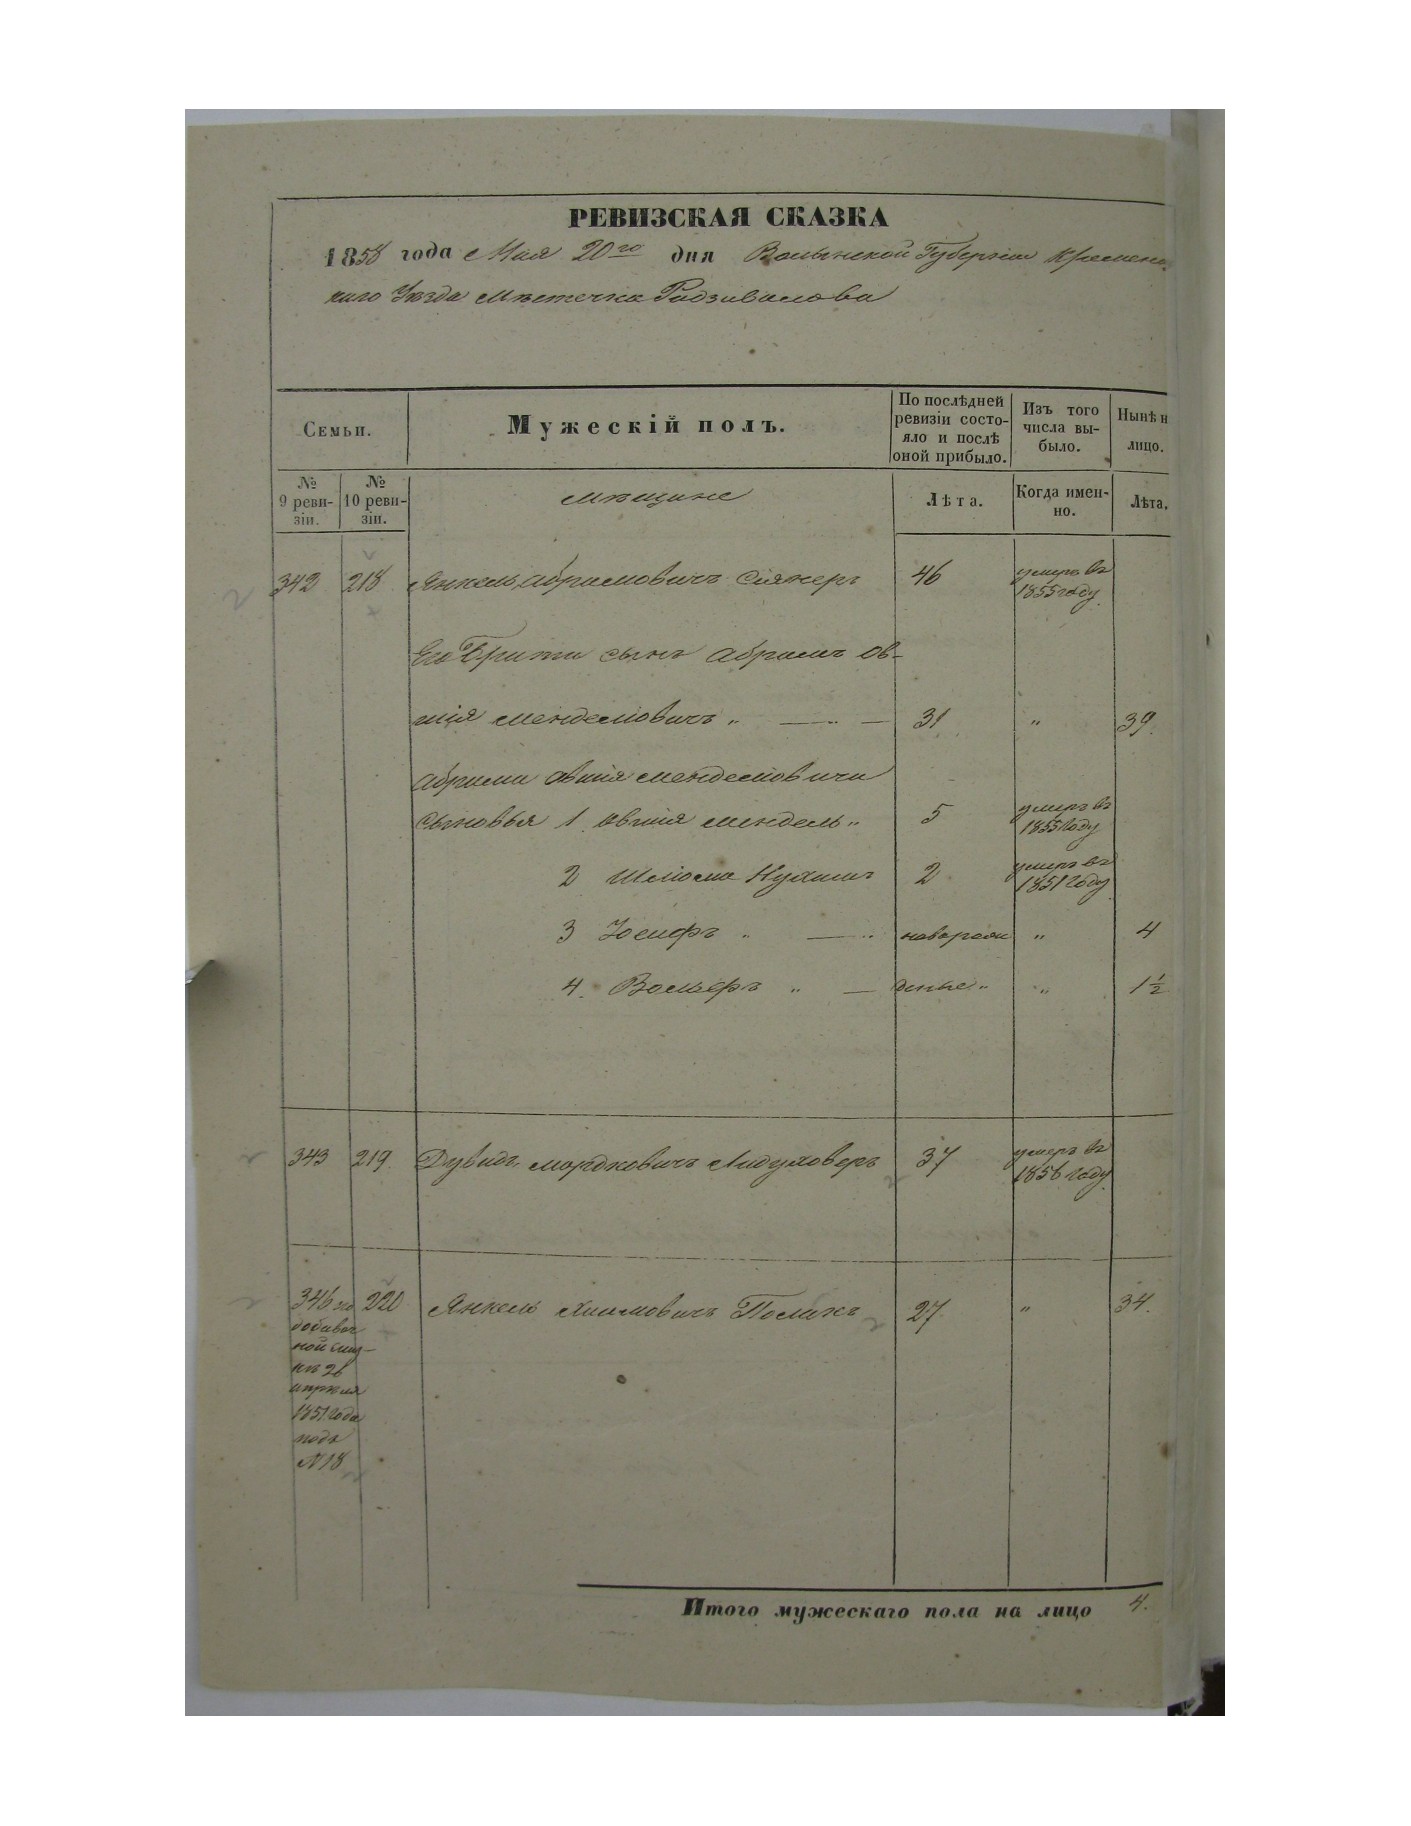 РЕВИЗСКАЯ СКАЗКА
1858 года Мая 20го дня Волынской Губернiи Кременец
каго Уѣзда мѣстечка Радзивилова
Семьи.
Мужескій полъ.
По послѣдней
ревизіи состо-
яло и послѣ
оной прибыло.
Изъ того
числа вы-
было.
Нынѣ н
лицо.
№
9 реви-
зіи.
№
10 реви-
зіи.
мѣщане
Лѣта.
Когда имен-
но.
Лѣта.
342 218 Янкель Абрамовичъ 46 умеръ въ
1855 году
Его сынъ Абрамъ Ов-
шія Менделіовичъ „ — „ — 31 „ 39.
Абрама Овшія Менделіовича
сыновья 1. Овшія Мендель „ 5 умеръ въ
1855 году
2 Шліома Нухимъ 2 умеръ въ
1851 году
3 Іосифъ „ — „ новорож „ 4
4. Вольфъ „ — денные „ „ 1½
343 219. Дувидъ Мордковичъ 37 умеръ въ
1856 году
346 по 220 Янкель Хаимовичъ Полякъ 27 „ 34.
добавоч
ной сказ-
кѣ 26
апрѣля
1851 года
подъ
№18
Итого мужескаго пола на лицо 4.